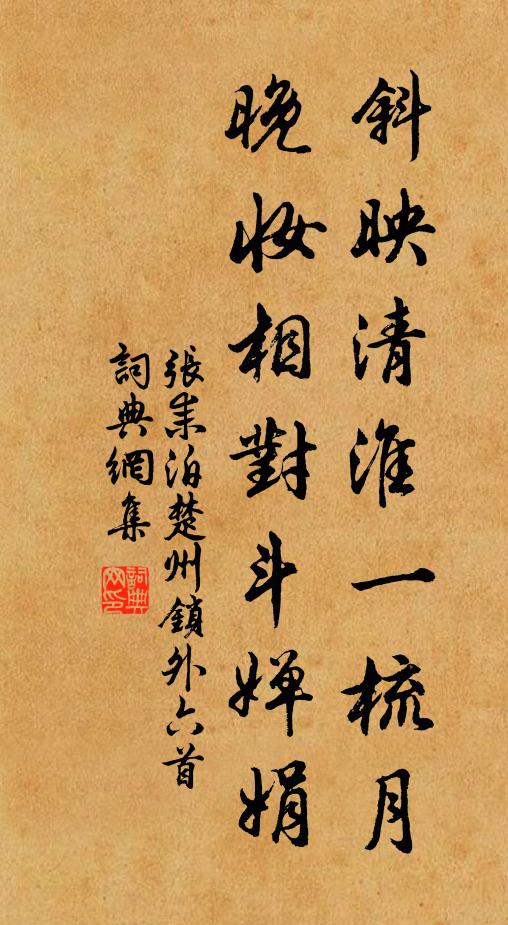 斜映清淮一梳月
晚妆相對斗嬋娟
張耒泊楚州鎖外六首
詞典網集
詞典網印